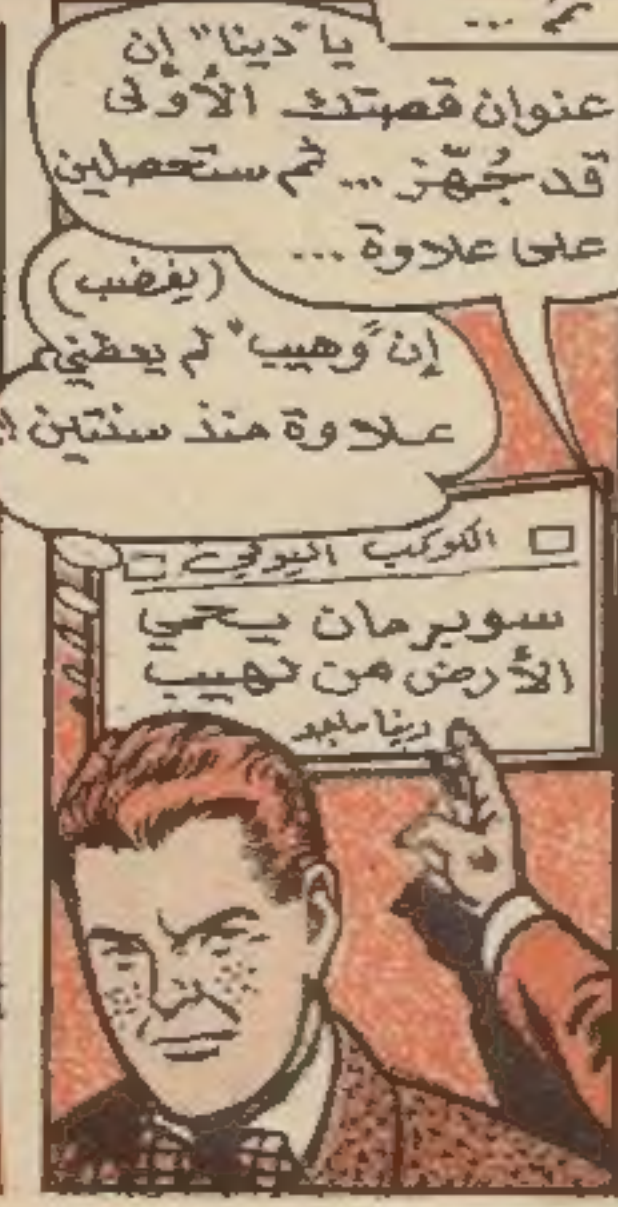 يا "دينا" إن
عنوان قصتك الأولى
قد جُهّز ... ثم ستحصلين
على علاوة ...
(بغضب)
إن "وهيب" لم يعطني
علاوة منذ سنتين !
الكوكب اليومي
سوبرمان يحمي
الأرض من لهيب
دينا ماجد